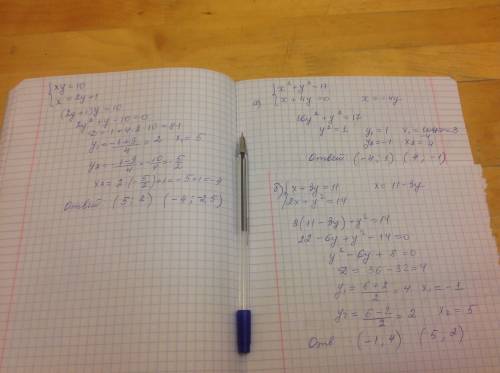 {xy = 10
{x = 2y+1
(2y+1)y = 10
2y² + y - 10 = 0
D = 1+4·2·10 = 81
y₁ = (-1+9)/4 = 2 x₁ = 5
y₂ = (-1-9)/4 = -10/4 = -5/2
x₂ = 2·(-5/2)+1 = -5+1 = -4
Ответ (5; 2) (-4; -2,5)
а) {x² + y² = 17
{x + 4y = 0 x = -4y
16y² + y² = 17
y² = 1 y₁ = 1
y₂ = -1 x₂ = 4
Ответ (-4; 1) (4; -1)
б) {x + 3y = 11 x = 11 - 3y
{2x + y² = 14
2(11 - 3y) + y² = 14
22 - 6y + y² - 14 = 0
y² - 6y + 8 = 0
D = 36 - 32 = 4
y₁ = (6+2)/2 = 4 x₁ = -1
y₂ = (6-2)/2 = 2 x₂ = 5
Отв (-1, 4) (5; 2)